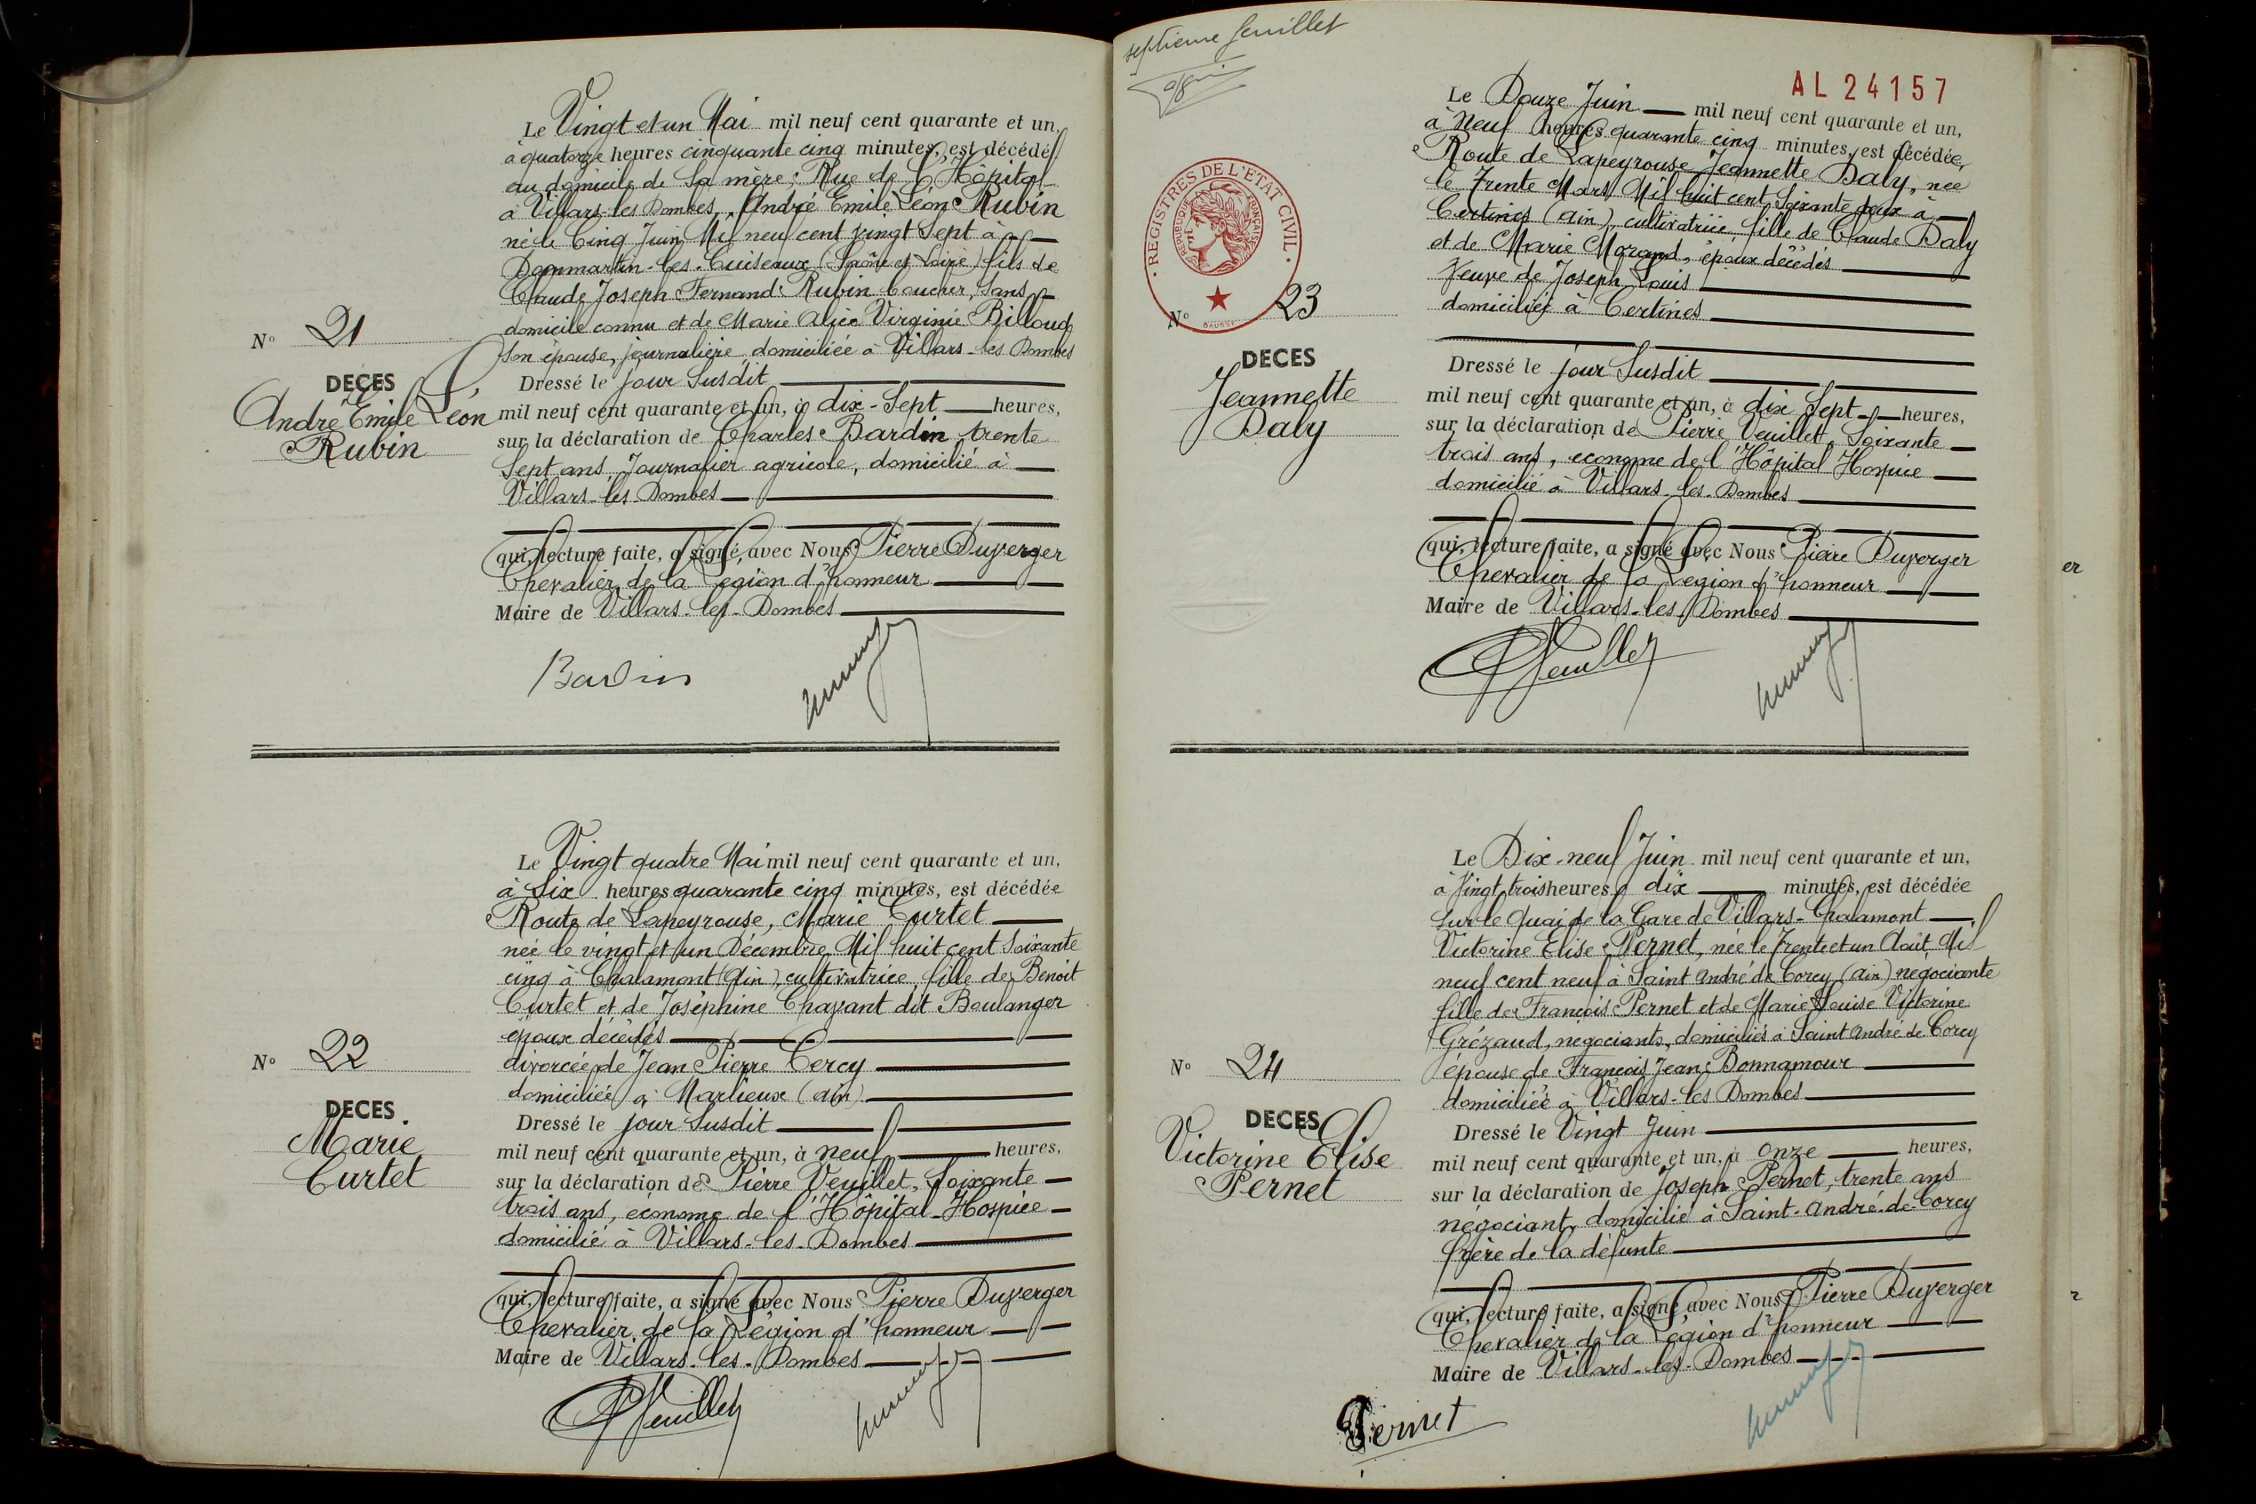 Le Vingt et un Mai mil neuf cent quarante et un,
à quatorze heures cinquante cinq minutes, est décédé
au domicile de sa mère, Rue de l'Hôpital
à Villars-les-Dombes, André Emile Léon Rubin
né le Cinq Juin Mil neuf cent vingt sept à
Dommartin-les-Cuiseaux (Saône et Loire) fils de
Claude Joseph Fernand Rubin boucher, sans
domicile connu et de Marie Alice Virginie Billoud
son épouse, journalière, domiciliée à Villars-les Dombes
N° 21
DECES
André Emile Léon
Rubin
Dressé le jour susdit
mil neuf cent quarante et un, à dix-sept heures,
sur la déclaration de Charles Bardin trente
sept ans, Journalier agricole, domicilié à
Villars-les Dombes
qui, lecture faite, a signé, avec Nous Pierre Duverger
Chevalier de la Légion d'honneur
Maire de Villars-les-Dombes
Bardin
Le Vingt quatre Mai mil neuf cent quarante et un,
à Six heures quarante cinq minutes, est décédée
Route de Lapeyrouse, Marie Curtet
née le vingt et un Décembre Mil huit cent soixante
cinq à Chalamont (Ain), cultivatrice, fille de Benoit
Curtet et de Joséphine Chavant dit Boulanger
époux décédés
divorcée de Jean Pierre Cercy
domiciliée à Marlieux (ain)
N° 22
DECES
Marie
Curtet
Dressé le jour susdit
mil neuf cent quarante et un, à neuf heures,
sur la déclaration de Pierre Veuillet, soixante
trois ans, économe de l'Hôpital-Hospice
domicilié à Villars-les-Dombes
qui, lecture faite, a signé avec Nous Pierre Duverger
Chevalier de la Légion d'honneur
Maire de Villars-les-Dombes
PVeuillet
septieme feuillet
AL 24157
REGISTRES DE L'ETAT CIVIL
REPUBLIQUE FRANÇAISE
Le Douze Juin mil neuf cent quarante et un,
à Neuf heures quarante cinq minutes, est décédée,
Route de Lapeyrouse Jeannette Daly, née
le Trente Mars Mil huit cent soixante deux à
Certines (ain), cultivatrice, fille de Claude Daly
et de Marie Morand, époux décédés
Veuve de Joseph Louis
domiciliée à Certines
N° 23
DECES
Jeannette
Daly
Dressé le jour susdit
mil neuf cent quarante et un, à dix sept heures,
sur la déclaration de Pierre Veuillet, soixante
trois ans, econome de l'Hôpital Hospice
domicilié à Villars-les-Dombes
qui, lecture faite, a signé avec Nous Pierre Duverger
Chevalier de la Legion d'honneur
Maire de Villars-les-Dombes
PVeuillet
Le Dix-neuf Juin mil neuf cent quarante et un,
à Vingt trois heures dix minutes, est décédée
sur le quai de la Gare de Villars-Chalamont
Victorine Elise Pernet, née le Trente et un Août Mil
neuf cent neuf à Saint André de Corcy (ain) négociante
fille de François Pernet et de Marie Louise Victorine
Grézaud, négociants, domiciliés à Saint André de Corcy
épouse de François Jean Bonnamour
domiciliée à Villars-les Dombes
N° 24
DECES
Victorine Elise
Pernet
Dressé le Vingt Juin
mil neuf cent quarante et un, à onze heures,
sur la déclaration de Joseph Pernet, trente ans
négociant, domicilié à Saint-André-de-Corcy
frère de la défunte
qui, lecture faite, a signé, avec Nous Pierre Duverger
Chevalier de la Légion d'honneur
Maire de Villars-les-Dombes
Pernet
er